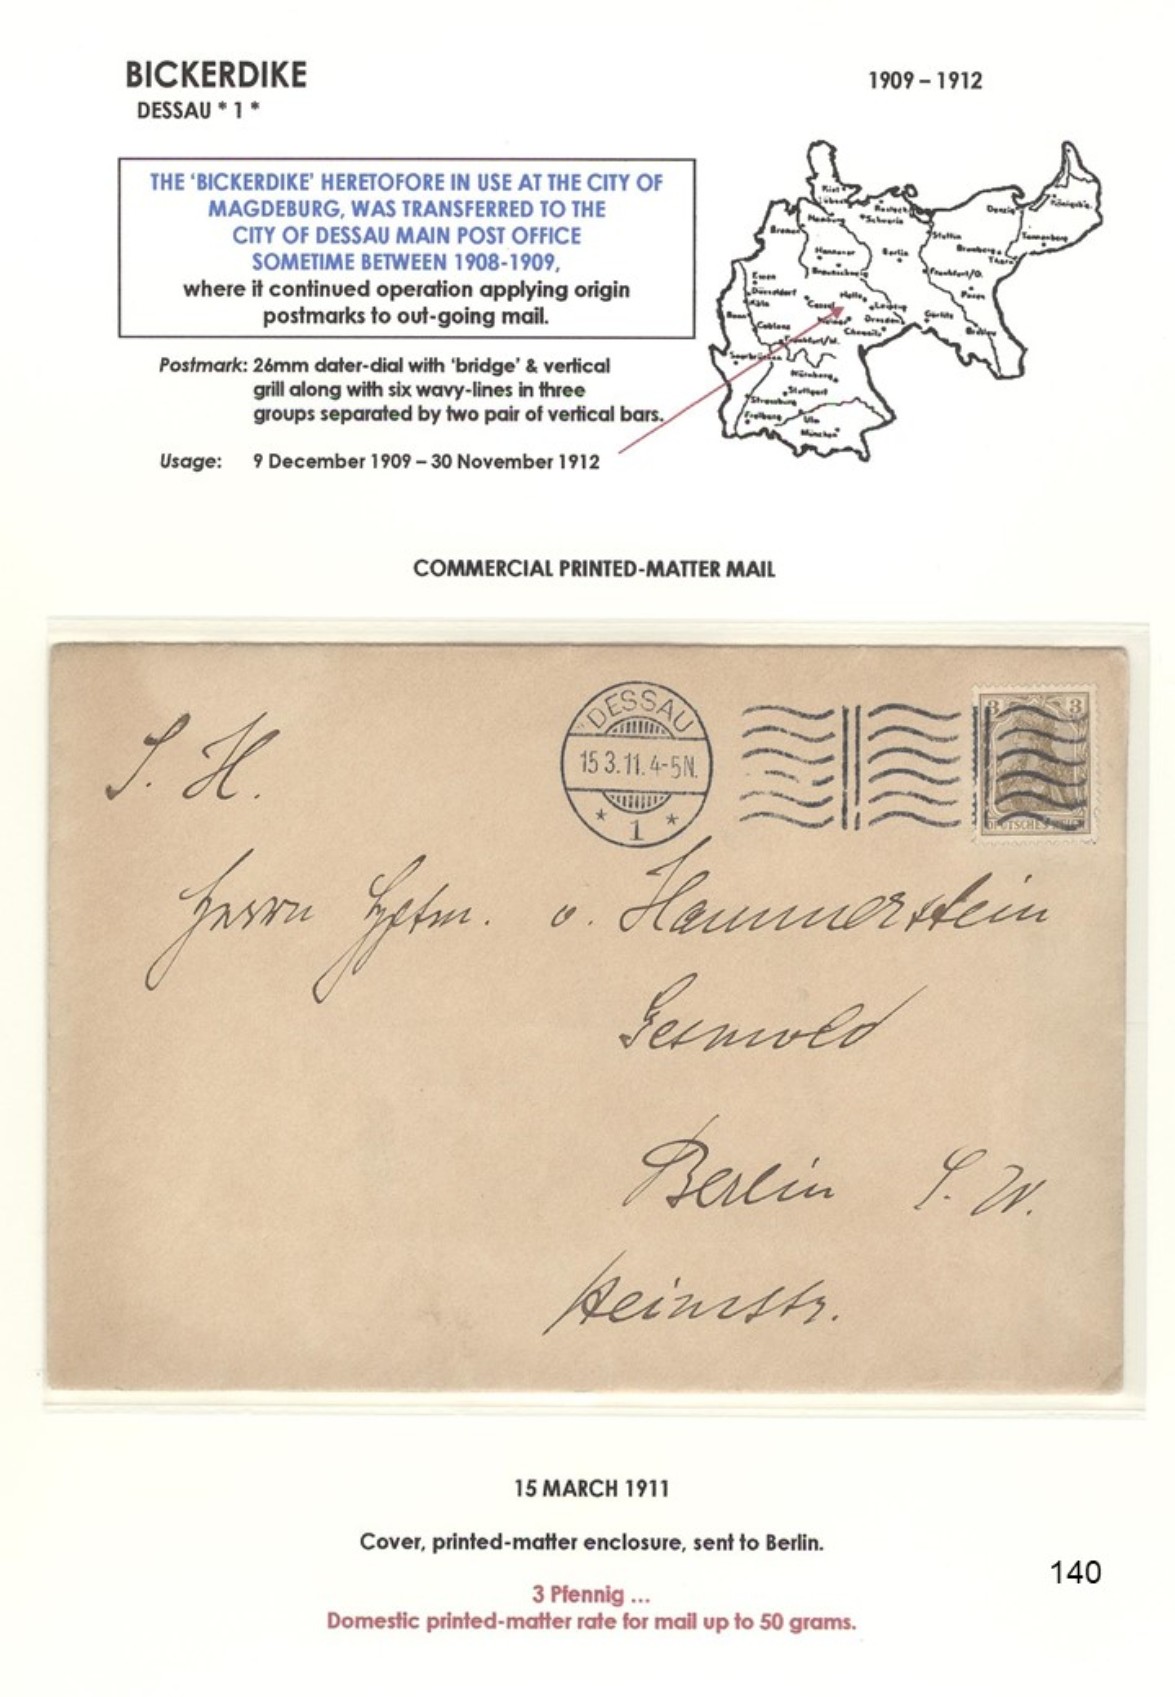 BICKERDIKE
1909 – 1912
DESSAU * 1 *
THE ‘BICKERDIKE’ HERETOFORE IN USE AT THE CITY OF
MAGDEBURG, WAS TRANSFERRED TO THE
CITY OF DESSAU MAIN POST OFFICE
SOMETIME BETWEEN 1908-1909,
where it continued operation applying origin
postmarks to out-going mail.
Postmark: 26mm dater-dial with ‘bridge’ & vertical
grill along with six wavy-lines in three
groups separated by two pair of vertical bars.
Usage: 9 December 1909 – 30 November 1912
Kiel
Lübeck
Rostock
Schwerin
Hamburg
Bremen
Stettin
Danzig
Tannenberg
Bromberg
Thorn
Hannover
Berlin
Braunschweig
Frankfurt/O.
Posen
Essen
Düsseldorf
Köln
Bonn
Cassel
Halle
Leipzig
Dresden
Görlitz
Breslau
Weimar
Chemnitz
Coblenz
Frankfurt/M.
Saarbrücken
Nürnberg
Stuttgart
Strassburg
Freiburg
Ulm
München
COMMERCIAL PRINTED-MATTER MAIL
DESSAU
15 3.11. 4-5N.
* 1 *
3 3
DEUTSCHES REICH
S. H.
Herrn Hptm. v. Hammerstein
Gesmold
Berlin S. W.
Heimstr.
15 MARCH 1911
Cover, printed-matter enclosure, sent to Berlin.
140
3 Pfennig ...
Domestic printed-matter rate for mail up to 50 grams.